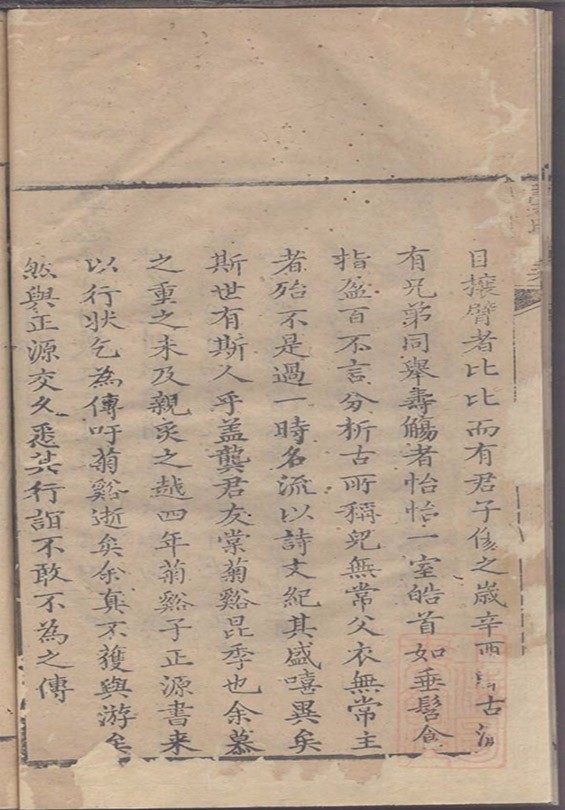 目攘臂者比比而有君子傷之歳辛酉古
有兄弟同舉壽觴者怡怡一室皓首如垂髫食
指盈百不言分析古所稱兒無常父衣無常主
者殆不是過一時名流以詩文紀其盛嘻異矣
斯世有斯人乎盖龔君友棠菊谿昆季也余慕
之重之未及親炙之越四年菊谿子正源書来
以行状乞為傳吁菊谿逝矣余真不獲與游矣
然與正源交久悉其行誼不敢不為之傳